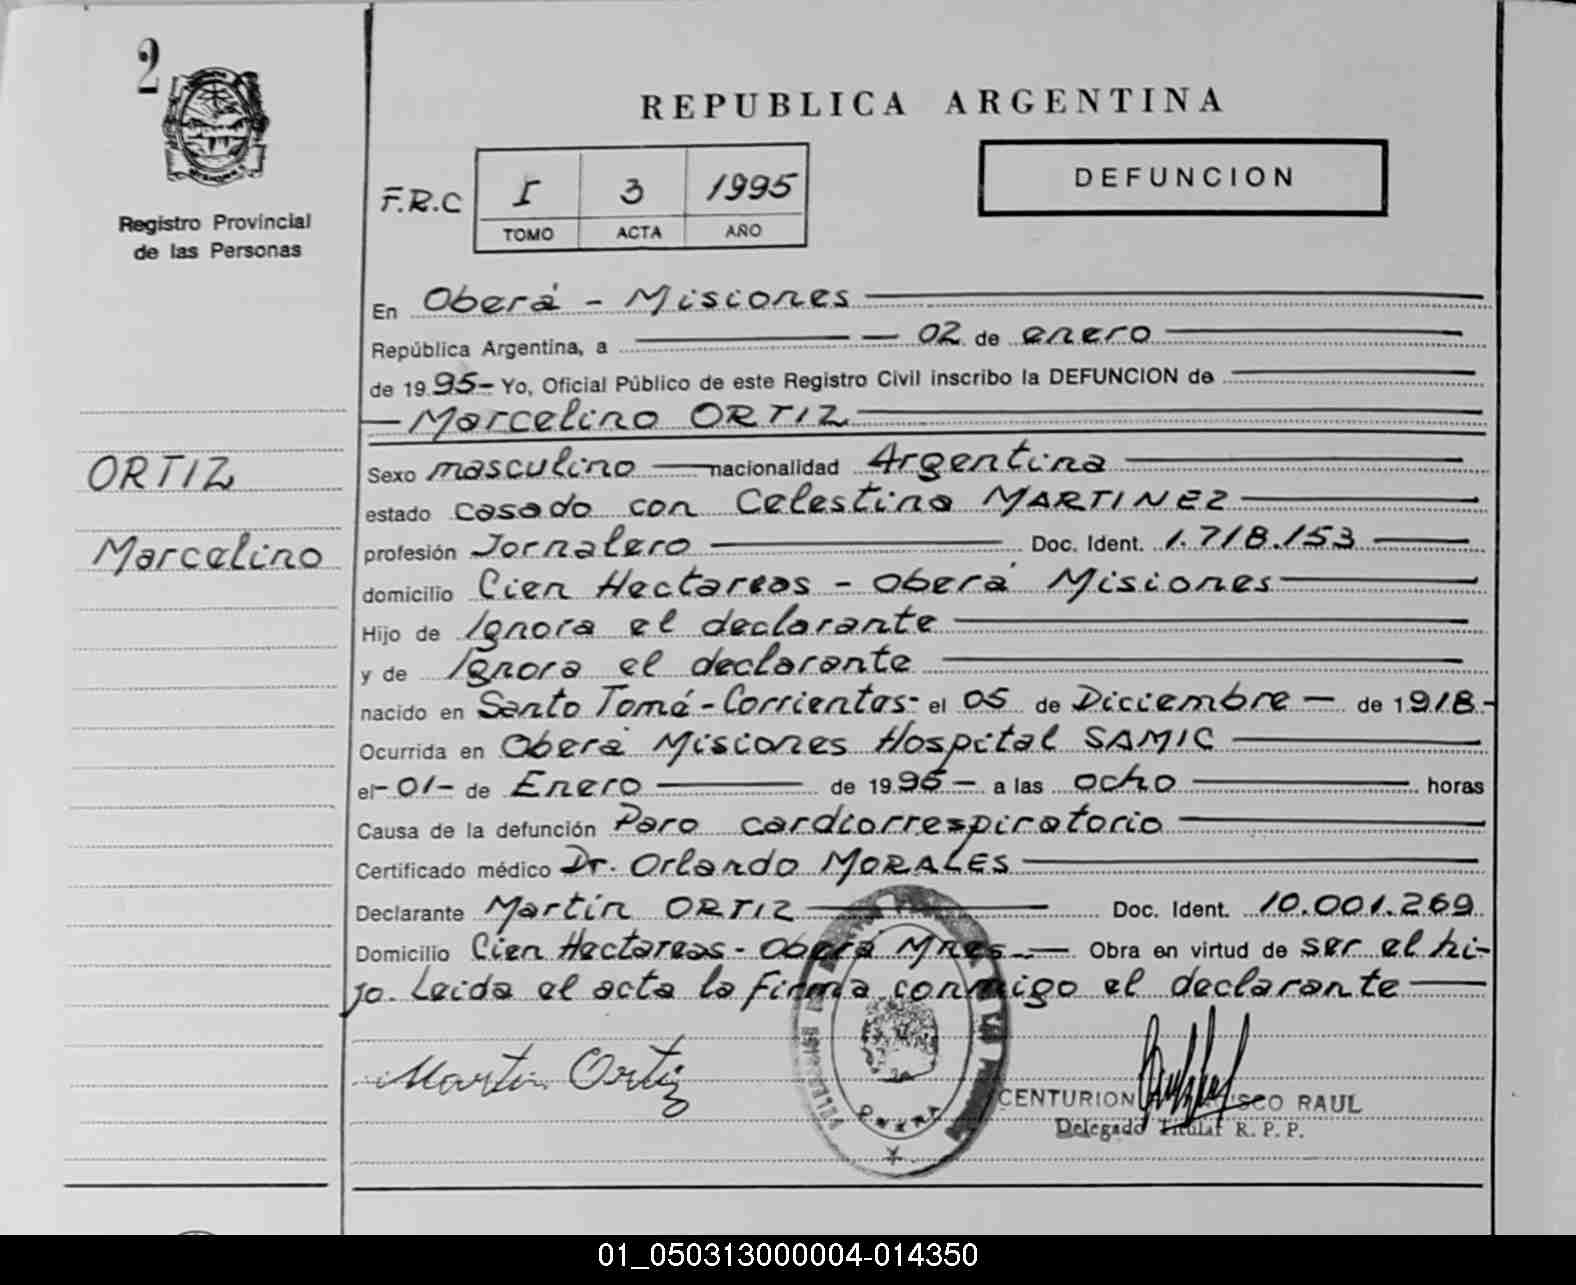 2
REPUBLICA ARGENTINA
Registro Provincial
de las Personas
F.R.C I 3 1995
TOMO ACTA AÑO
DEFUNCION
En Oberá - Misiones
República Argentina, a 02 de enero
de 1995- Yo, Oficial Público de este Registro Civil inscribo la DEFUNCION de
Marcelino ORTIZ
ORTIZ
Marcelino
Sexo masculino nacionalidad Argentina
estado casado con Celestina MARTINEZ
profesión Jornalero Doc. Ident. 1.718.153
domicilio Cien Hectareas - Oberá Misiones
Hijo de Ignora el declarante
y de Ignora el declarante
nacido en Santo Tomé - Corrientes - el 05 de Diciembre - de 1918.-
Ocurrida en Oberá Misiones Hospital SAMIC
el - 01 - de Enero de 1995 - a las ocho horas
Causa de la defunción Paro cardiorrespiratorio
Certificado médico Dr. Orlando MORALES
Declarante Martin ORTIZ Doc. Ident. 10.001.269
Domicilio Cien Hectareas - Oberá Mnes. - Obra en virtud de ser el hi-
jo. Leida el acta la firma conmigo el declarante
Martin Ortiz
CENTURION RAUL
Delegado Titular R. P. P.
OBERA
01_050313000004-014350